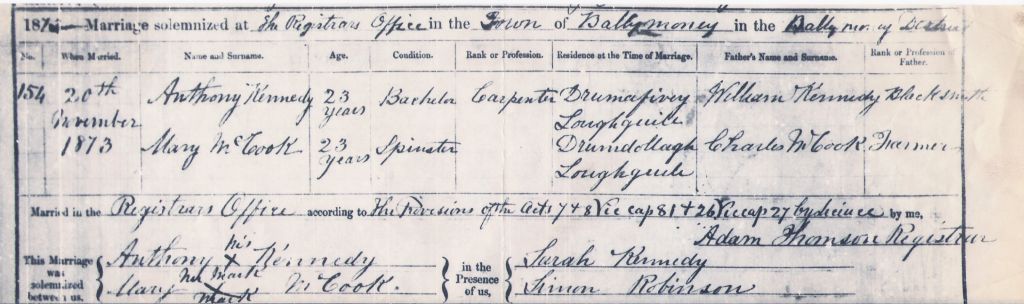 187 Marriage solemnized at the Registrars Office in the Town of Ballymoney in the Ballymoney District
No. When Married. Name and Surname. Age. Condition. Rank or Profession. Residence at the Time of Marriage. Father's Name and Surname. Rank or Profession of Father.
154 20th November 1873 Anthony Kennedy 23 years Bachelor Carpenter Drumafivey Loughguile William Kennedy Blacksmith
Mary McCook 23 years Spinster Drumdollagh Loughguile Charles McCook Farmer
Married in the Registrars Office according to the Provisions of the Acts 7 & 8 Vic cap 81 & 26 Vic cap 27 by licence by me,
Adam Thomson Registrar
This Marriage was solemnized between us, Anthony his X mark Kennedy
Mary her X mark McCook.
in the Presence of us, Sarah Kennedy
Simon Robinson